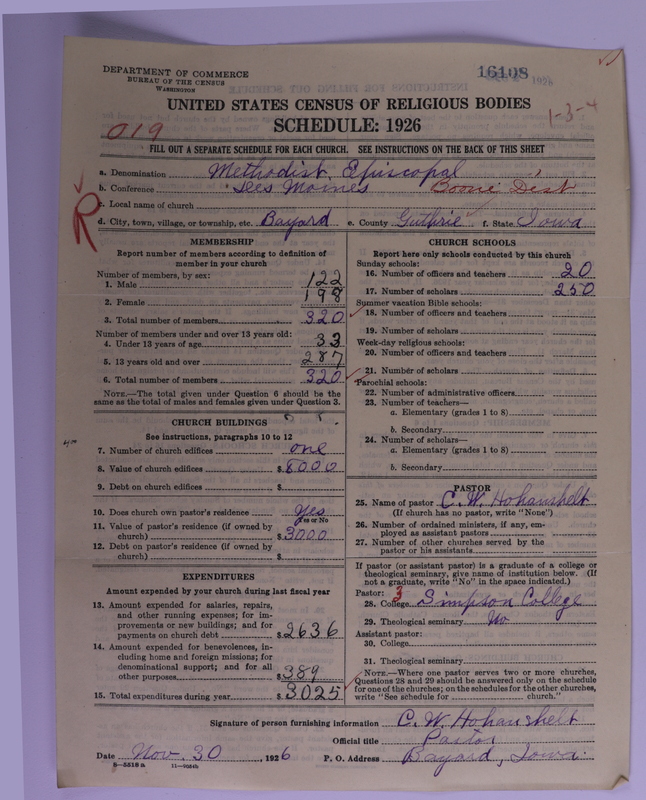 DEPARTMENT OF COMMERCE
BUREAU OF THE CENSUS
WASHINGTON
16198
1-3-4
UNITED STATES CENSUS OF RELIGIOUS BODIES
SCHEDULE: 1926
019
FILL OUT A SEPARATE SCHEDULE FOR EACH CHURCH. SEE INSTRUCTIONS ON THE BACK OF THIS SHEET
a. Denomination Methodist Episcopal
b. Conference Des Moines Boone Dist
c. Local name of church
R
d. City, town, village, or township, etc. Bayard e. County Guthrie f. State Iowa
MEMBERSHIP
Report number of members according to definition of
member in your church
Number of members, by sex:
1. Male 122
2. Female 198
3. Total number of members 320
Number of members under and over 13 years old:
4. Under 13 years of age 33
5. 13 years old and over 287
6. Total number of members 320
NOTE.—The total given under Question 6 should be the
same as the total of males and females given under Question 3.
CHURCH BUILDINGS
See instructions, paragraphs 10 to 12
7. Number of church edifices one
8. Value of church edifices $8000
9. Debt on church edifices $
10. Does church own pastor's residence Yes
Yes or No
11. Value of pastor's residence (if owned by
church) $3000
12. Debt on pastor's residence (if owned by
church) $
EXPENDITURES
Amount expended by your church during last fiscal year
13. Amount expended for salaries, repairs,
and other running expenses; for im-
provements or new buildings; and for
payments on church debt $2636
14. Amount expended for benevolences, in-
cluding home and foreign missions; for
denominational support; and for all
other purposes $389
15. Total expenditures during year $3025
CHURCH SCHOOLS
Report here only schools conducted by this church
Sunday schools:
16. Number of officers and teachers 20
17. Number of scholars 250
Summer vacation Bible schools:
18. Number of officers and teachers
19. Number of scholars
Week-day religious schools:
20. Number of officers and teachers
21. Number of scholars
Parochial schools:
22. Number of administrative officers
23. Number of teachers—
a. Elementary (grades 1 to 8)
b. Secondary
24. Number of scholars—
a. Elementary (grades 1 to 8)
b. Secondary
PASTOR
25. Name of pastor C. W. Hohanshelt
(If church has no pastor, write "None")
26. Number of ordained ministers, if any, em-
ployed as assistant pastors
27. Number of other churches served by the
pastor or his assistants
If pastor (or assistant pastor) is a graduate of a college or
theological seminary, give name of institution below. (If
not a graduate, write "No" in the space indicated.)
Pastor: 3
28. College Simpson College
29. Theological seminary No
Assistant pastor:
30. College
31. Theological seminary
NOTE.—Where one pastor serves two or more churches,
Questions 28 and 29 should be answered only on the schedule
for one of the churches; on the schedules for the other churches,
write "See schedule for church."
Signature of person furnishing information C. W. Hohanshelt
Official title Pastor
Date Nov. 30, 1926 P. O. Address Bayard, Iowa.
8—5518a